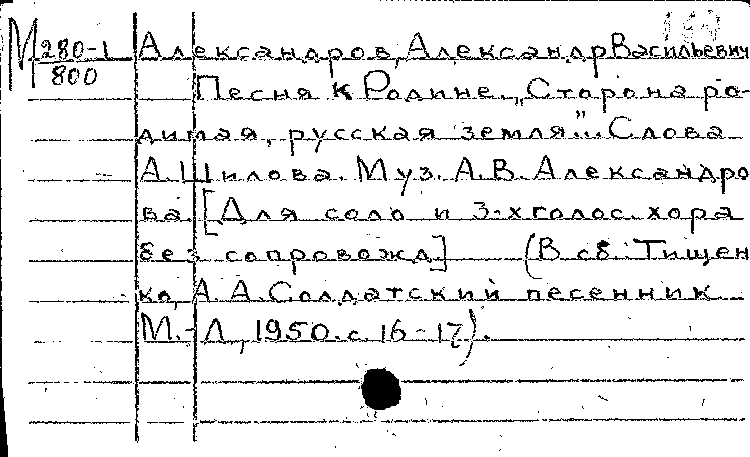 М 280-1 Александров, Александр Васильевич
800
Песня к Родине. „Сторона ро-
димая, русская земля"... Слова
А. Шилова. Муз. А. В. Александро
ва. [Для соло и 3-х голос. хора
без сопровожд] (В сб. Тищен
ко, А. А. Солдатский песенник
М.-Л., 1950. с. 16-17).